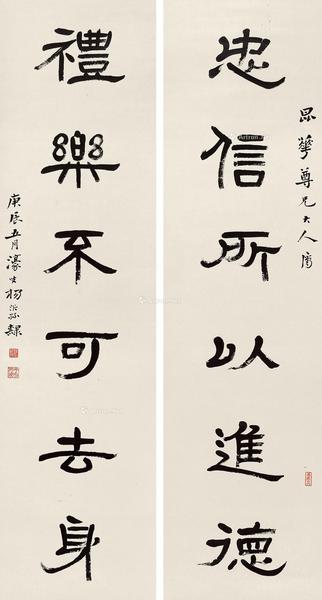 忠信所以進德
昆華尊兄大人屬
禮樂不可去身
庚辰五月濠叟楊沂孫隸